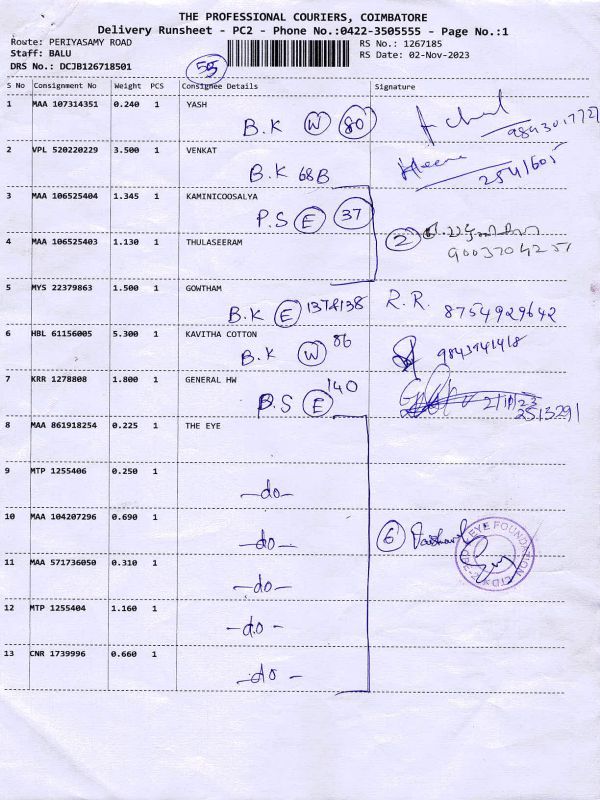 THE PROFESSIONAL COURIERS, COIMBATORE
Delivery Runsheet - PC2 - Phone No.:0422-3505555 - Page No.:1
Route: PERIYASAMY ROAD
RS No.: 1267185
Staff: BALU
RS Date: 02-Nov-2023
DRS No.: DCJB126718501
55
S No Consignment No Weight PCS Consignee Details Signature
1 MAA 107314351 0.240 1 YASH
B.K W 80
2 VPL 520220229 3.500 1 VENKAT
B.K 68B
2541601
3 MAA 106525404 1.345 1 KAMINICOOSALYA
P.S E 37
2
9003704251
4 MAA 106525403 1.130 1 THULASEERAM
5 MYS 22379863 1.500 1 GOWTHAM
B.K E 137&138 R.R. 8754929642
6 HBL 61156005 5.300 1 KAVITHA COTTON
B.K W 86
7 KRR 1278808 1.800 1 GENERAL HW
B.S E 140
2/11/23
2513291
8 MAA 861918254 0.225 1 THE EYE
9 MTP 1255406 0.250 1
-do-
10 MAA 104207296 0.690 1
-do- 6
EYE FOUNDATION
11 MAA 571736050 0.310 1
-do-
12 MTP 1255404 1.160 1
-do-
13 CNR 1739996 0.660 1
-do-